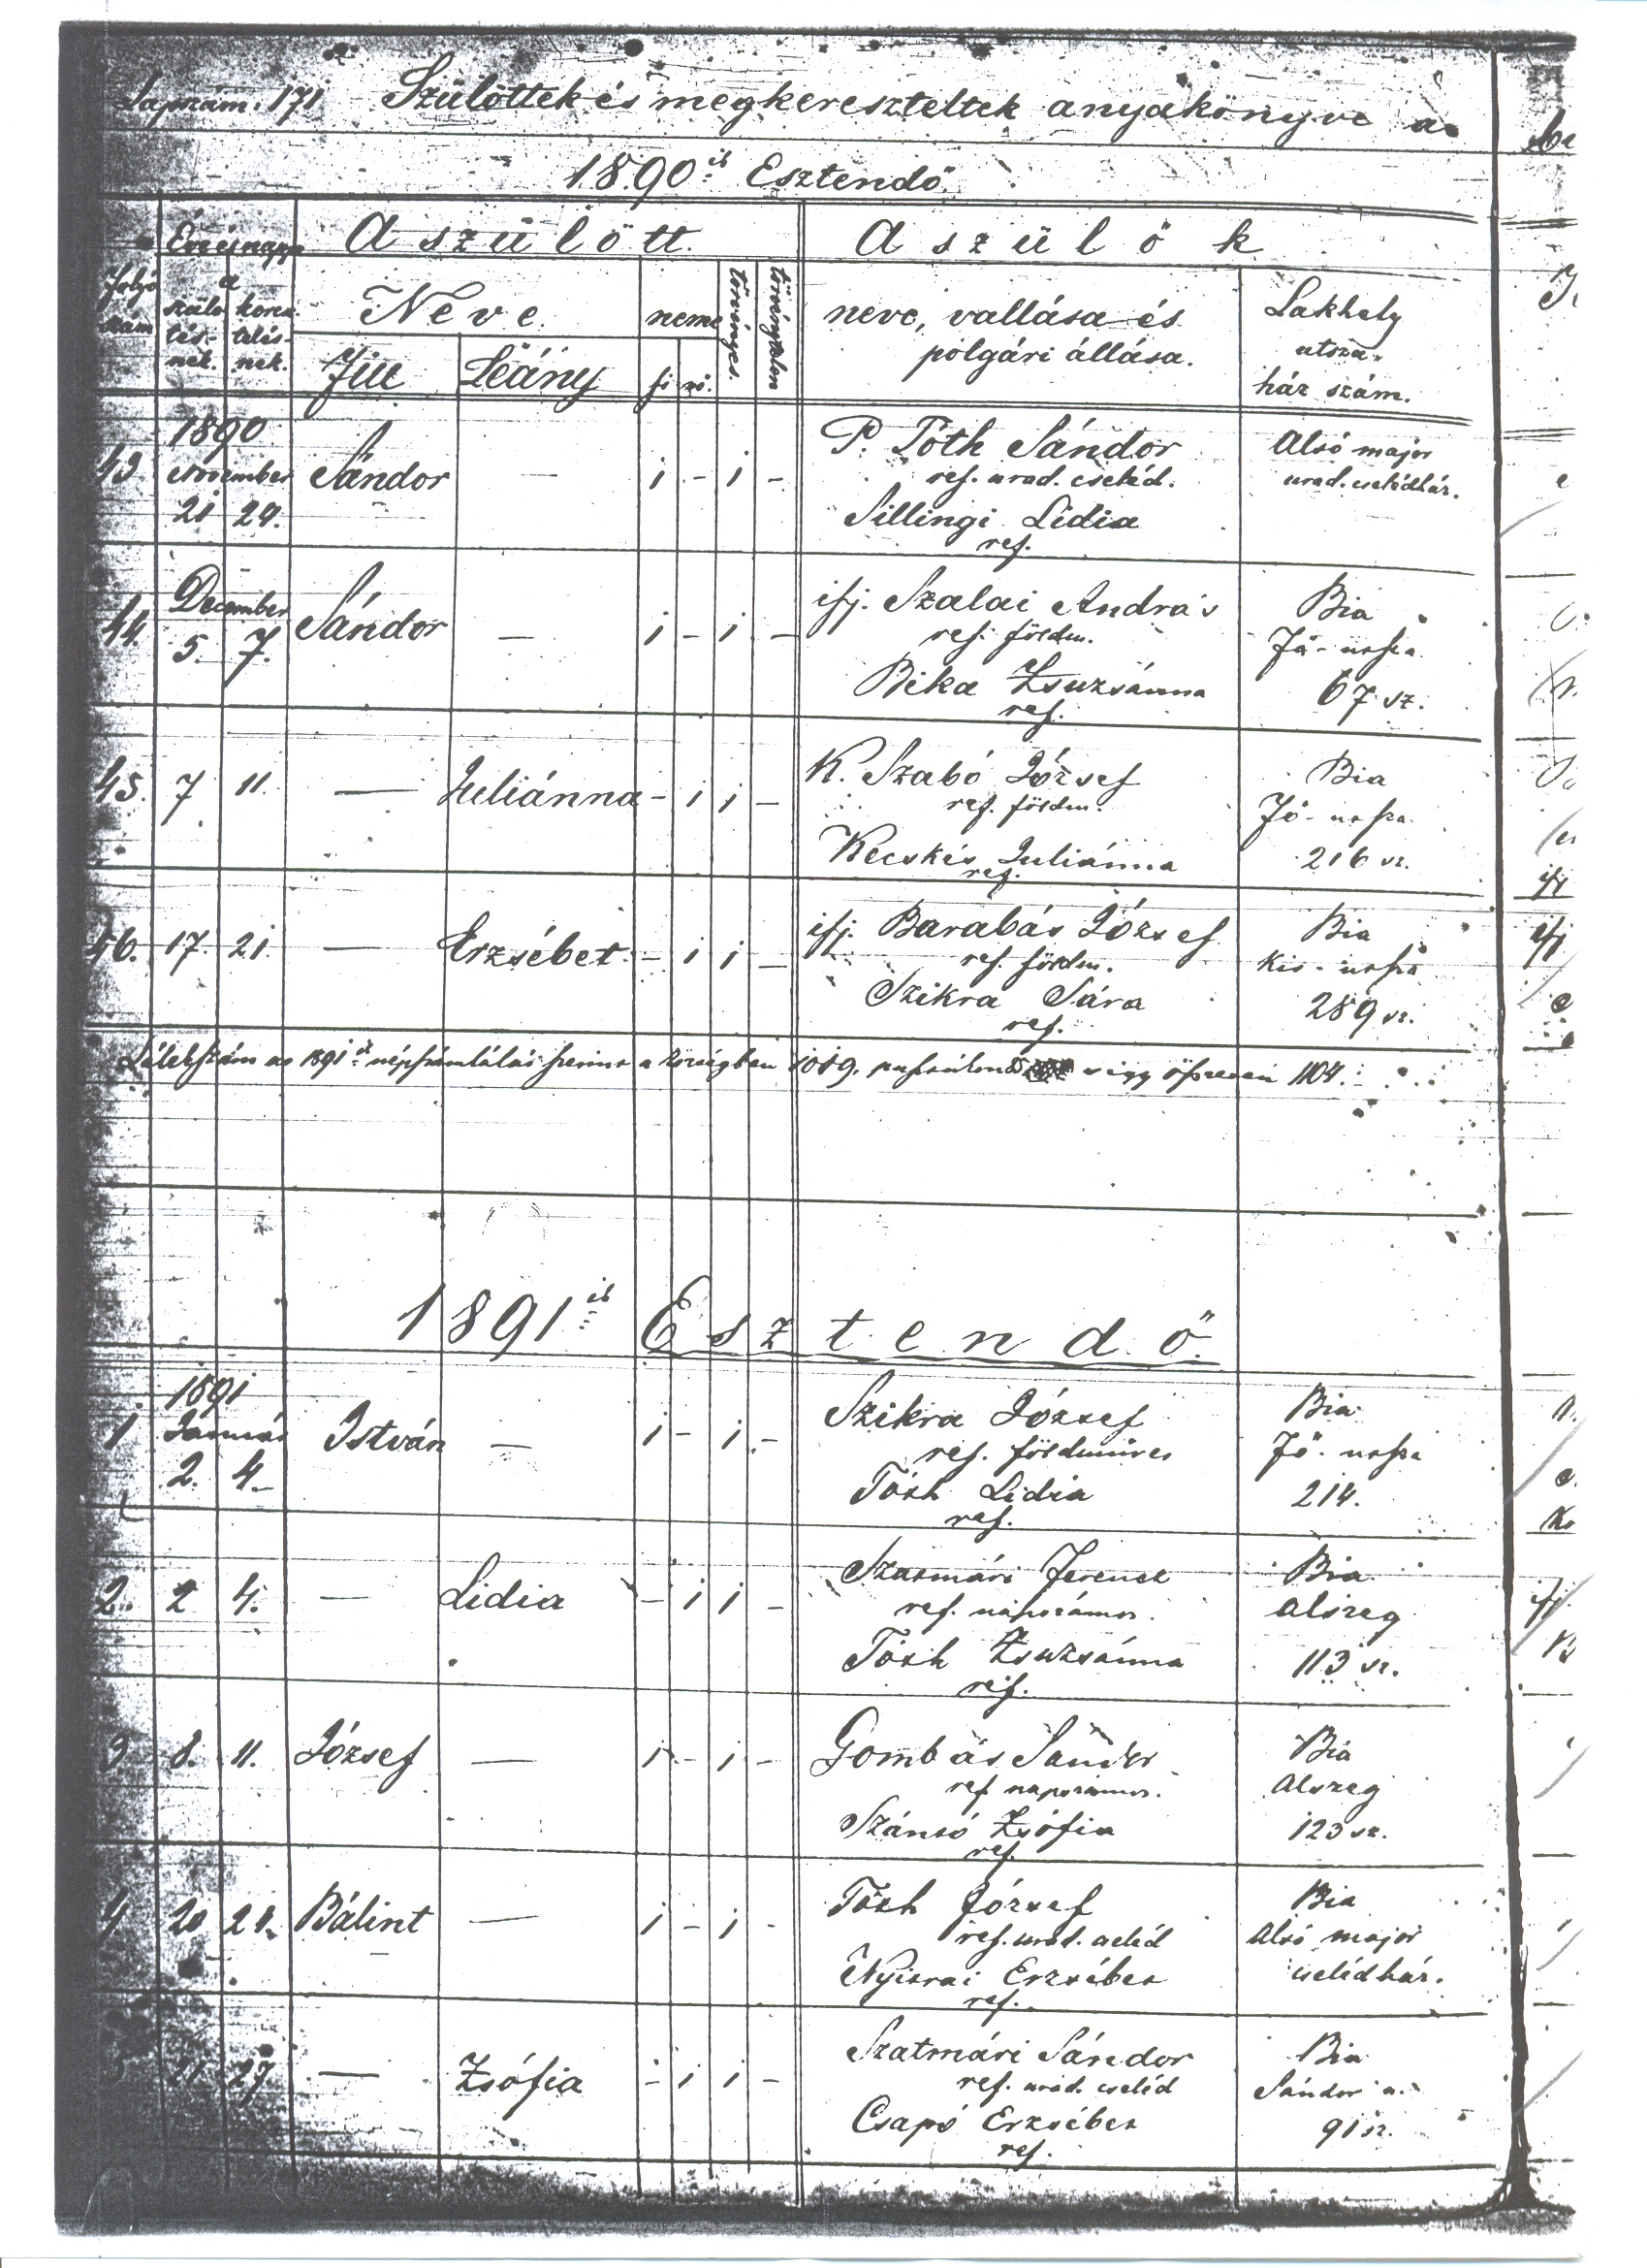 Lapszám. 171 Szülöttek és megkereszteltek anyakönyve az
1890ik Esztendő.
Év és napja A szülött. A szülők
Folyó szám
a
szüle-
tés-
nek.
keresz-
telés-
nek.
Neve.
Fiu Leány
neme
fi nő.
törvényes.
törvénytelen
neve, vallása és
polgári állása.
Lakhely
utsza.
ház szám.
1890
43 November Sándor — 1 - 1 - P. Tóth Sándor Alsó major
21 29. ref. urad. cseléd. urad. cselédház.
Sillingi Lidia
ref.
December
44. 5. 7. Sándor — 1 - 1 - ifj. Szalai András Bia
ref. földm. Fő-utsza
Beka Zsuzsánna 67 sz.
ref.
45. 7 11. — Juliánna - 1 1 - K. Szabó József Bia
ref. földm. Fő-utsza
Kecskés Juliánna 216 sz.
ref.
46. 17. 21. — Erzsébet - 1 1 - ifj. Barabás József Bia
ref. földm. Kis-utsza
Szikra Sára 289 sz.
ref.
Lélekszám az 1891ik népszámlálás szerint a községben 1019, pusztákon s így összesen 1104.
1891ik Esztendő.
1891
1 Január István — 1 - 1 - Szikra József Bia
2. 4. ref. földműves Fő-utsza
Tóth Lidia 214.
ref.
2. 2 4. — Lidia - 1 1 - Szatmári Ferencz Bia
ref. napszámos. Alszeg
Tóth Zsuzsánna 113 sz.
ref.
3 8. 11. József — 1 - 1 - Gombás Sándor Bia
ref. napszámos. Alszeg
Szántó Zsófia 123 sz.
ref.
4 20 21. Bálint — 1 - 1 - Tóth József Bia
ref. urad. cseléd Alsó major
Nyitrai Erzsébet cselédház.
ref.
21 27. — Zsófia - 1 1 - Szatmári Sándor Bia
ref. urad. cseléd Sándor u.
Csapó Erzsébet 91 sz.
ref.